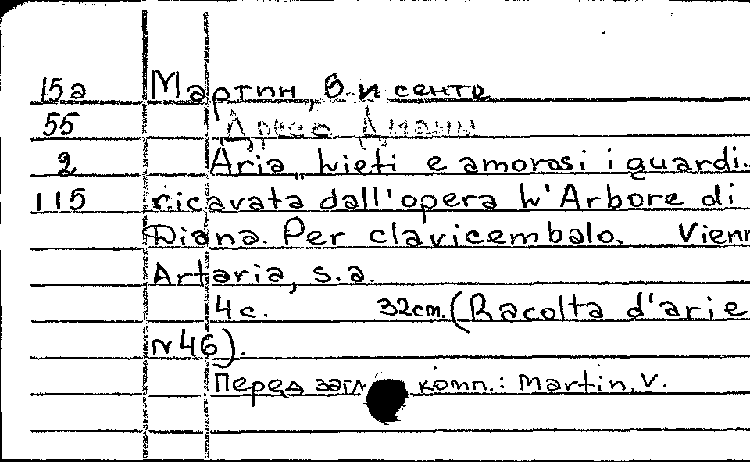 15а Мартин, Висенте
55 Древо Дианы
2 Aria „Lieti e amorosi i guardi..
115 ricavata dall'opera L'Arbore di
Diana. Per clavicembalo. Vienn
Artaria, s.a.
4 c. 32cm. (Racolta d'arie
N 46).
Перед загл. комп.: Martin, V.